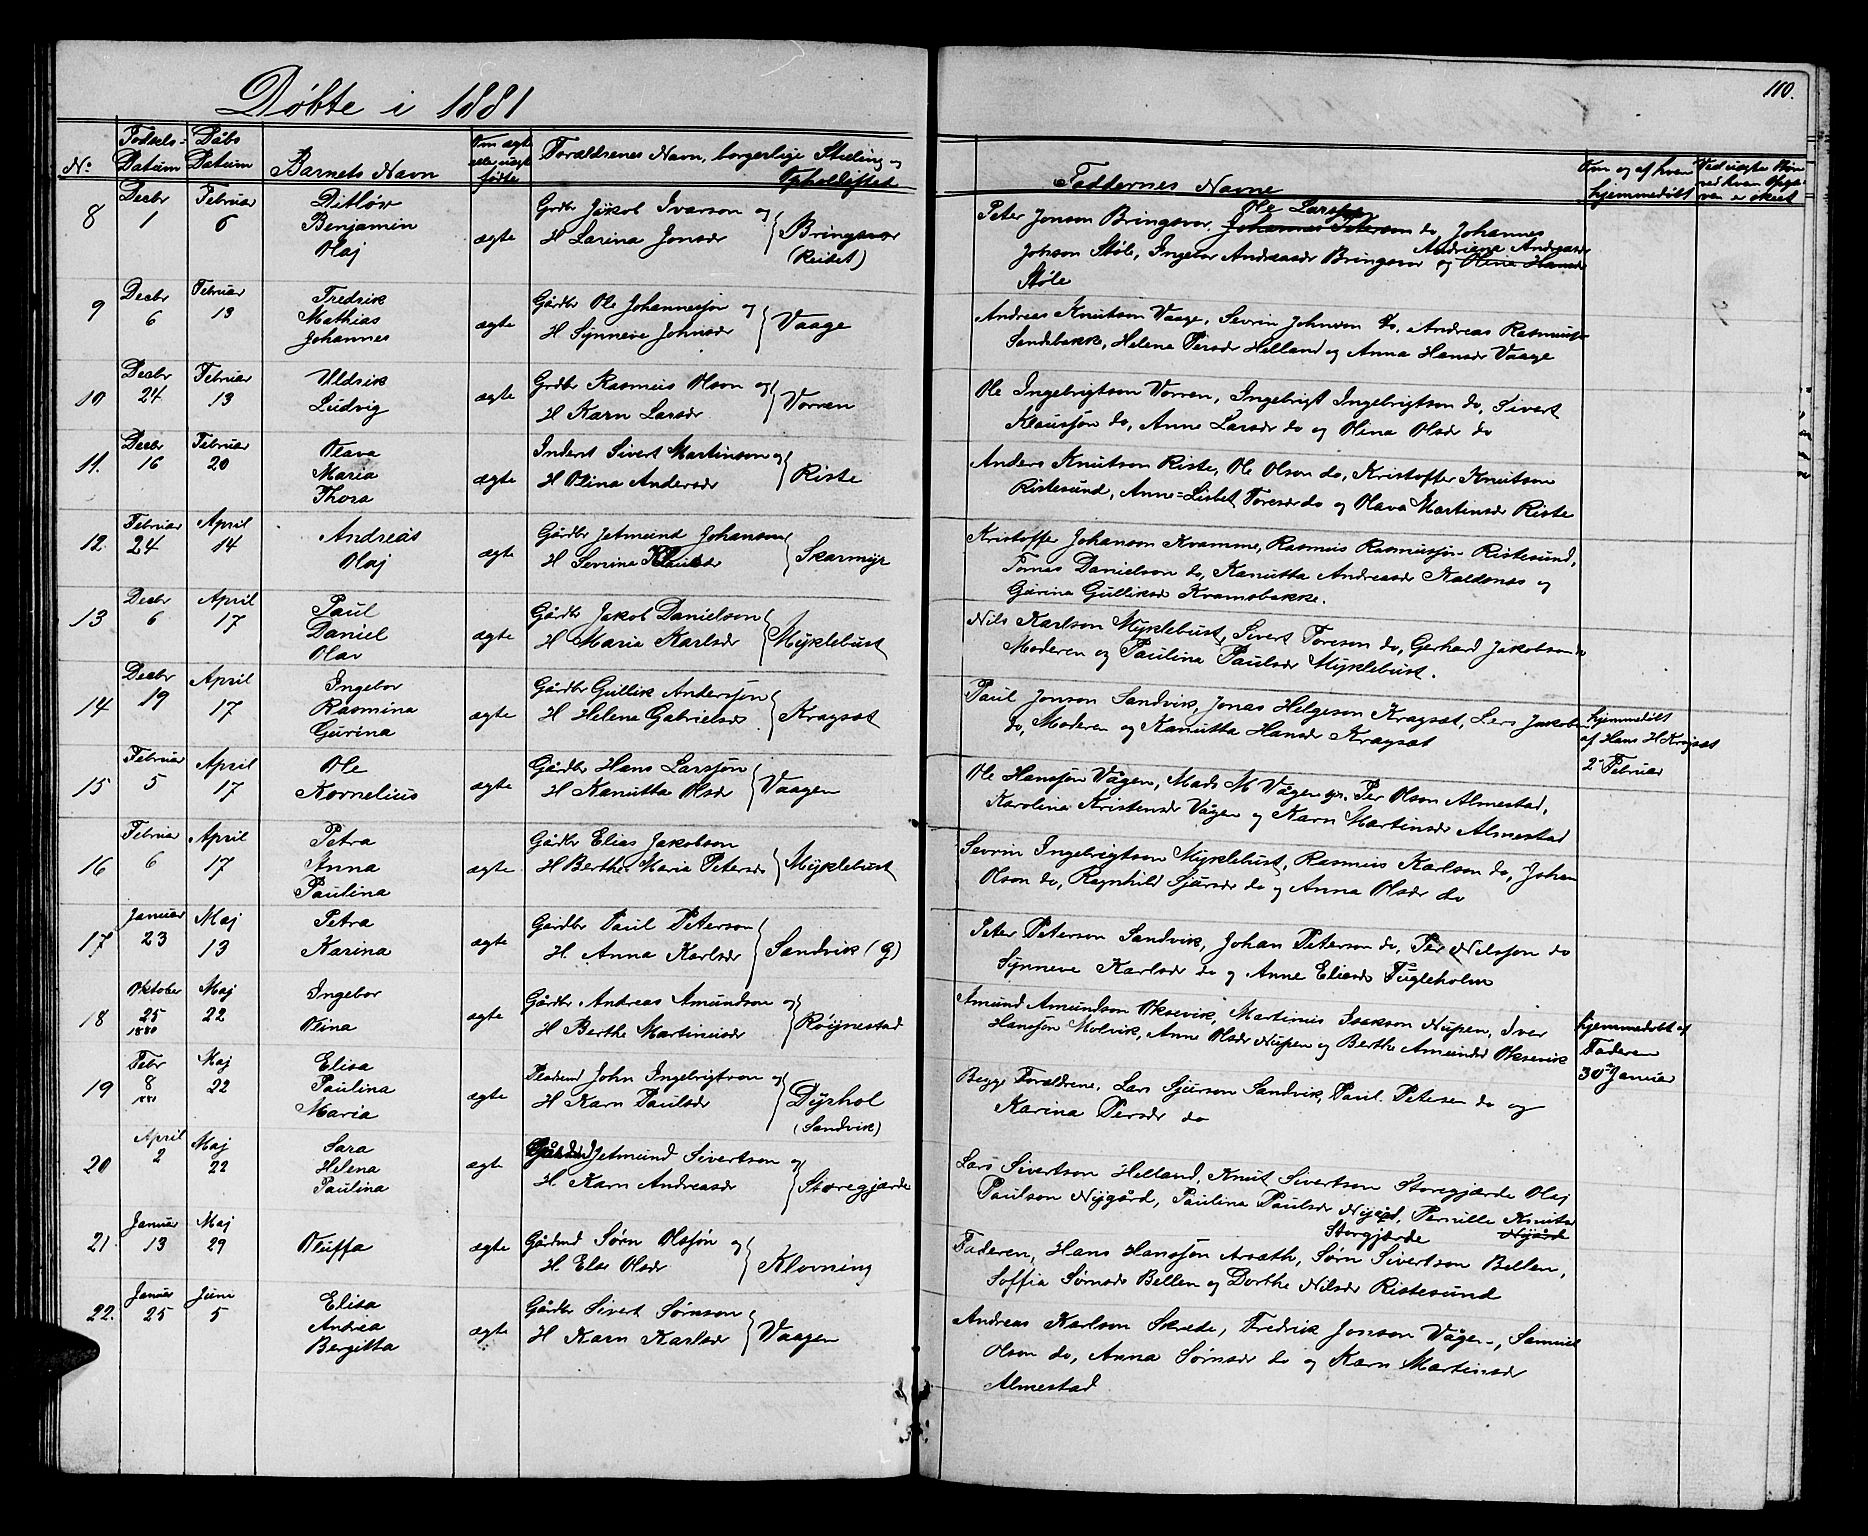 Døbte i 1881
110.
No.
Fødsels=
Datum
Dåbs
Datum
Barnets Navn
Om ægte
eller uægte
fødte
Forældrenes Navn, borgerlige Stilling og
Opholdssted
Faddernes Navne
Om og af hvem
hjemmedøbt
8
Decbr
1
Februar
6
Ditløv
Benjamin
Olaj
ægte
Grdbr Jakob Ivarson og
H Larina Jonsdr
Bringsvor
(Reidet)
Peter Jonson Bringsvor, Ole Larsson Johannes Peterson do, Johannes
Johson Støle, Ingebor Andreasdr Bringsvor og Andriane Andreasdr Olina Hansdr
Støle
9
Decbr
6
Februar
13
Fredrik
Mathias
Johannes
ægte
Gårdbr Ole Johannessøn og
H Synneve Johnsdr
Vaage
Andreas Knutson Vaage, Sevrin Johnson do, Andreas Rasmusson
Sandsbakk, Helena Persdr Helland og Anna Hansdr Vaage
10
Decbr
24
Februar
13
Uldrik
Ludvig
ægte
Grdbr Rasmus Olson og
H Karn Larsdr
Vorren
Ole Ingebrigtson Vorren, Ingebrigt Ingebrigtson do, Sivert
Klaussøn do, Anne Larsdr do og Olina Olsdr do
11.
Decbr
16
Februar
20
Olava
Maria
Thora
ægte
Inderst Sivert Martinson og
H Olina Andersdr
Riste
Anders Knutson Riste, Ole Olson do, Kristoffer Knutson
Ristesund, Anne=Lisbet Toresdr do og Olava Martinsdr Riste
12.
Februar
24
April
14
Andreas
Olaj
ægte
Gårdbr Jetmund Johanson
H Sevrina Klausdr
Skarmyr
Kristoffer Johanson Kvamme, Rasmus Rasmussøn Ristesund,
Tomas Danielson do, Kanutta Andreasdr Koldenas og
Gurina Gulliksdr Kvamsbakke.
13
Decbr
6
April
17
Paul
Daniel
Olav
ægte
Gårdbr Jakob Danielson
H Maria Karlsdr
Myklebust
Nils Karlson Myklebust, Sivert Toreson do, Gerhard Jakobson
Moderen og Paulina Paulsdr Myklebust.
14
Decbr
19
April
17
Ingebor
Rasmina
Gurina
ægte
Gårdbr Gullik Anderssøn
H Helena Gabrielsdr
Kragsæt
Paul Jonson Sandvik, Jonas Helgeson Kragsæt, Lars Jakobson
do, Moderen og Kanutta Hansdr Kragsæt
hjemmedøbt
af Hans H Kragsæt
2 Februar
15
Februar
5
April
17
Ole
Kornelius
ægte
Gårdbr Hans Larssøn
H Kanutta Olsdr
Vaagen
Ole Hanssøn Vågen, Mads M Vågen gr. Per Olson Almestad,
Karolina Kristensdr Vågen og Karn Martinsdr Almestad
16
Februar
6
April
17
Petra
Anna
Paulina
ægte
Gårdbr Elias Jakobson
H Berthe Maria Petersdr
Myklebust
Sevrin Ingebrigtson Myklebust, Rasmus Karlson do, Johan
Olson do, Ragnhild Sjursdr do og Anna Olsdr do
17
Januar
23
Maj
13
Petra
Karina
ægte
Gårdbr Paul Peterson
H Anna Karlsdr
Sandvik (G)
Peter Peterson Sandvik, Johan Peterson do, Per Nilssøn do
Synneve Karlsdr do og Anne Eliasdr Fugleholm
18
Oktober
25
1880
Maj
22
Ingebor
Olina
ægte
Gårdbr Andreas Amundson og
H Berthe Martinusdr
Røijnestad
Amund Amundson Oksevik, Martinus Isakson Nupen, Iver
Hanssøn Molvik, Anne Olsdr Nupen og Berthe Amundsd Oksevik
hjemmedøbt af
Faderen
30 Januar
19
Febr
8
1881
Maj
22
Elisa
Paulina
Maria
ægte
Pladsmd John Ingebrigtson og
H Karn Paulsdr
Dyrhol
(Sandvik)
Begge Forældrene, Lars Sjurson Sandvik, Paul Petersen do og
Karina Persdr do
20
April
2
Maj
22
Sara
Helena
Paulina
ægte
Jetmund Sivertson og
H Karn Andreasdr
Storegjærde
Lars Sivertson Helland, Knut Sivertson Storegjærde Olaj
Paulson Nygård, Paulina Paulsdr Nygård, Pernille Knutsd
Storgjærde Nygårde
21.
Januar
13
Maj
29
Oluffa
ægte
Gårdmd Sørn Olssøn og
H. Else Olsdr
Klovning
Faderen, Hans Hanssøn Arsæth, Sørn Sivertson Bellen,
Soffia Sørnsdr Bellen og Dorthe Nilsdr Ristesund
22.
Januar
25
Juni
5
Elisa
Andrea
Bergitta
ægte
Gårdbr Sivert Sørnson
H Karn Karlsdr
Vaagen
Andreas Karlson Skrede, Fredrik Jonson Vågen, Samuel
Olson do, Anna Sørnsdr do og Karn Martinsdr
Almestad